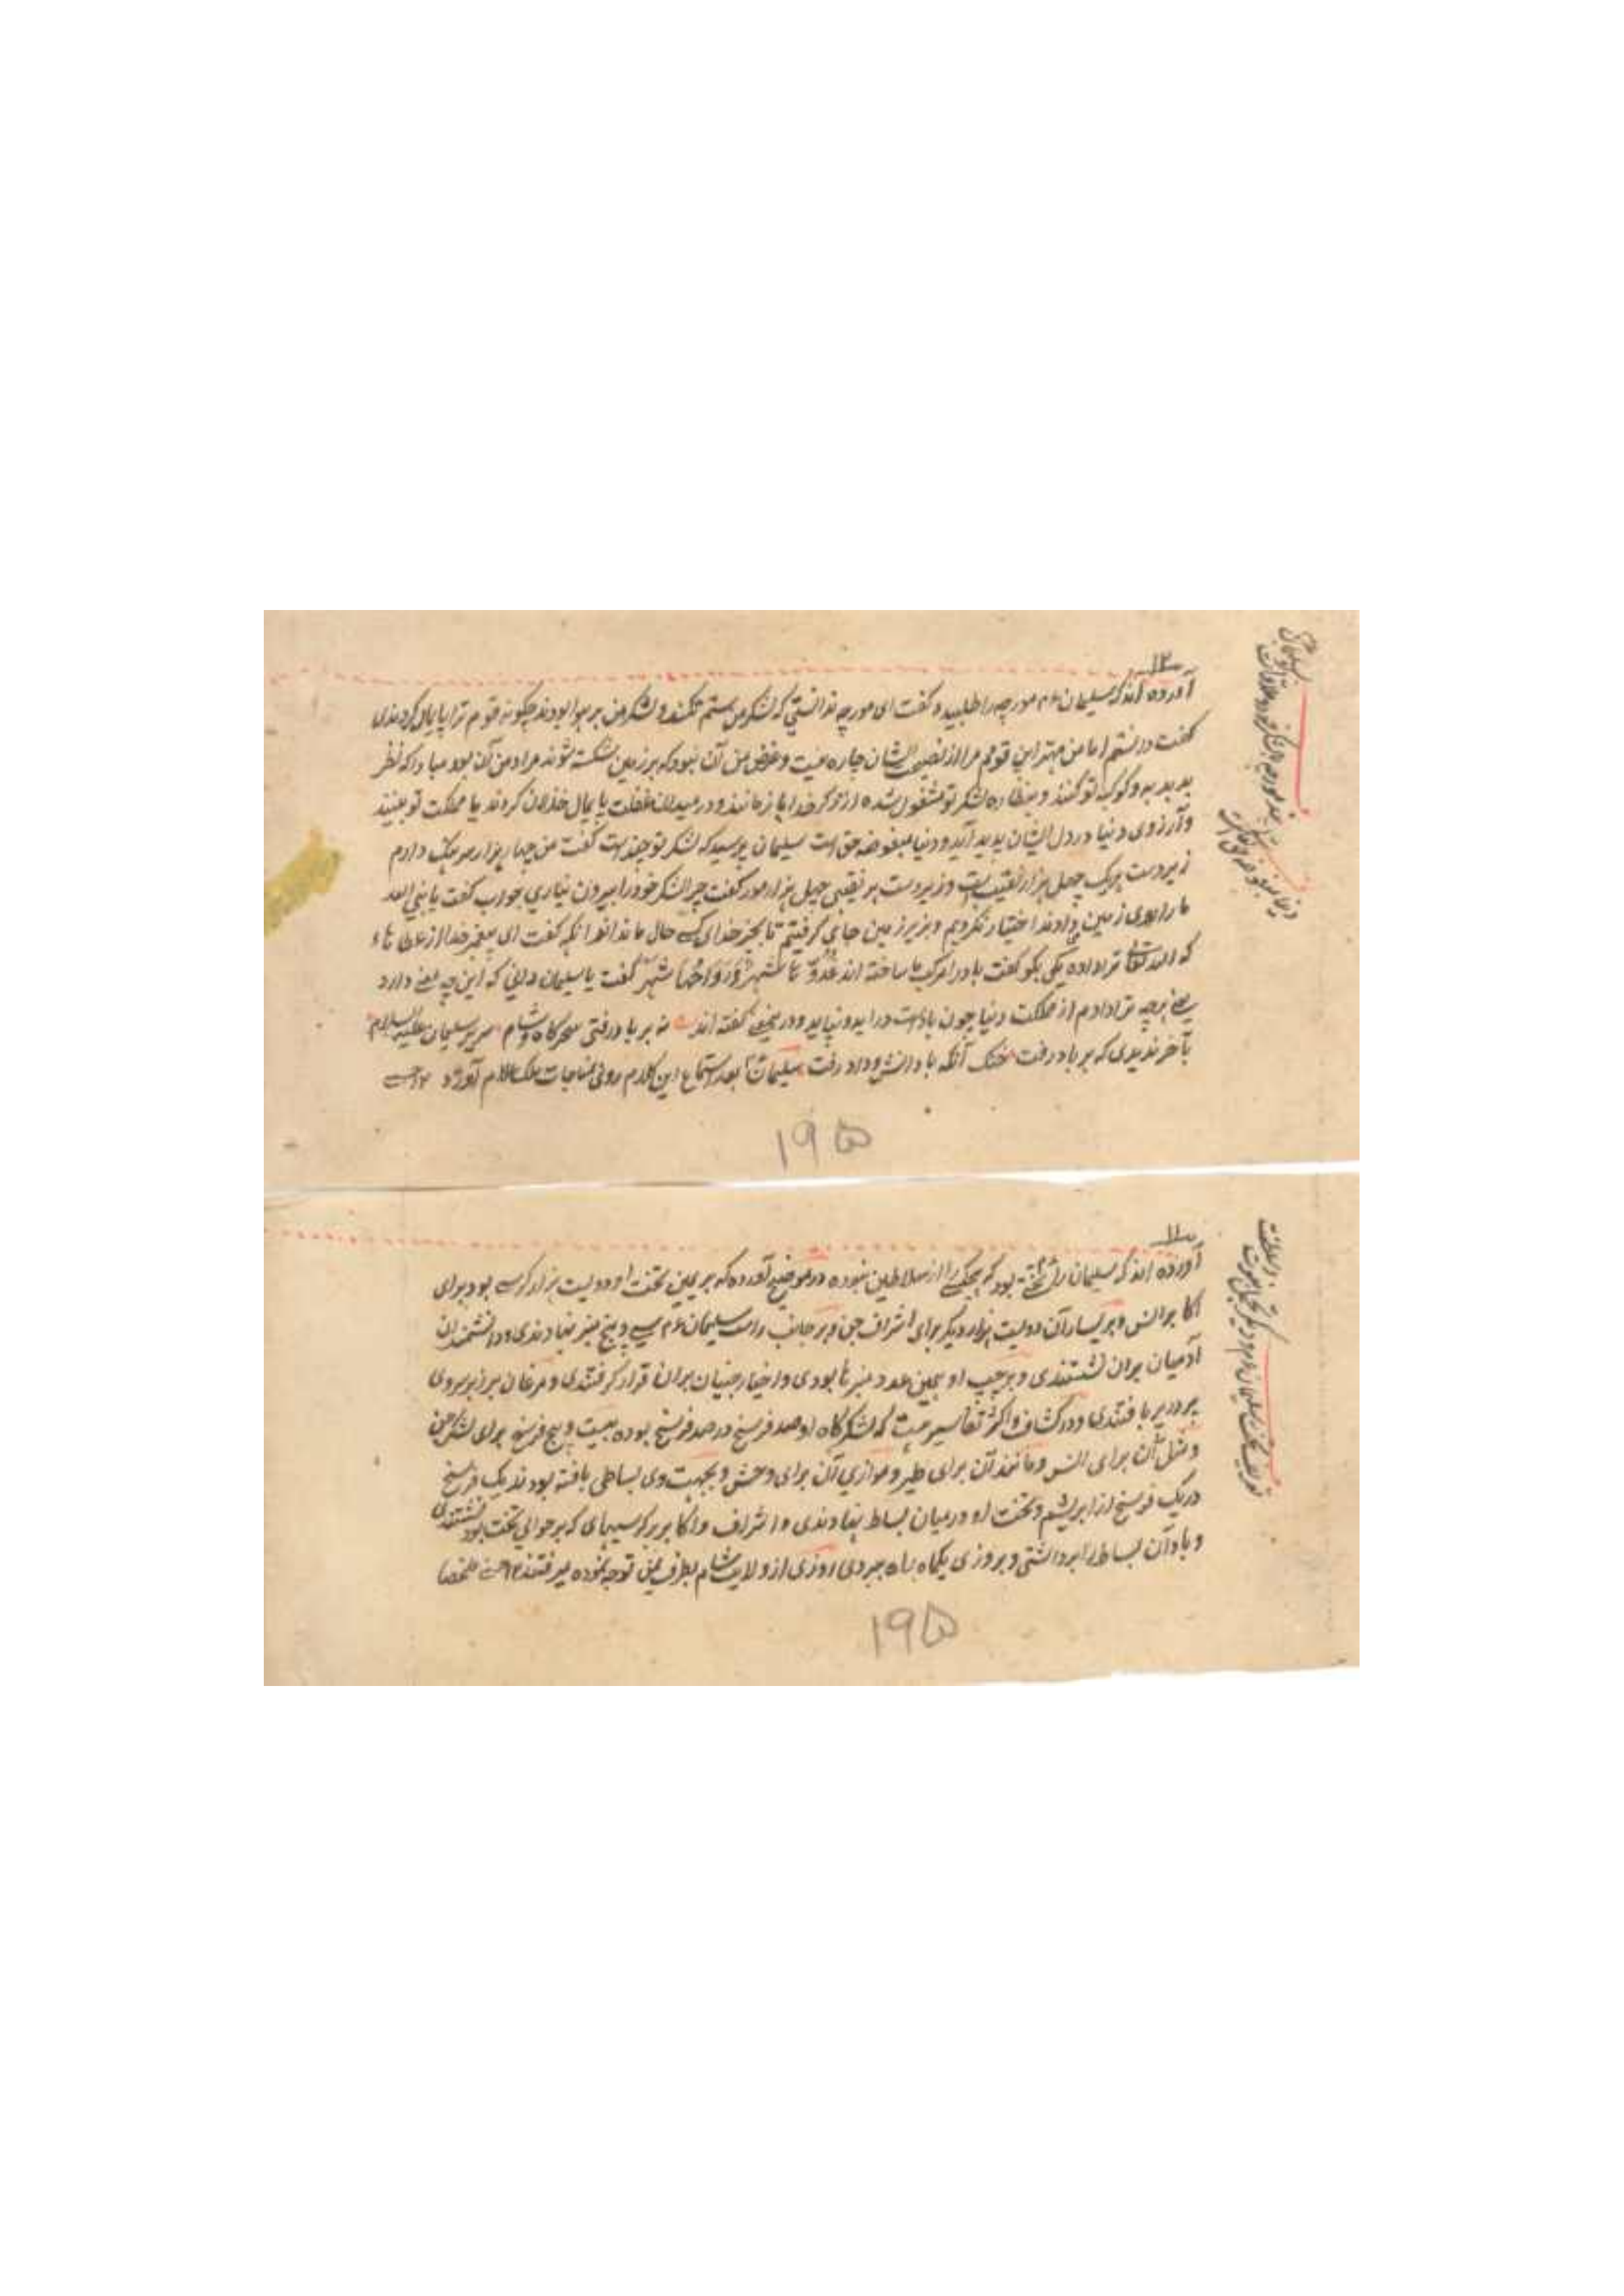 ۱۲
آورده اند که سلیمان ۴م مورچه را طلبید و گفت ای مورچه ندانستی که لشکر من ستم نکنند و لشکر من بر هوا بودند چگونه قوم ترا پایمال کردندی
گفت دانستم اما من مهتر این قومم مرا از نصیحت ایشان چاره نیست و غرض من آن نبود که بر زمین شکسته شوند مراد من آن بود مبادا که نظر
بدبدبه و کوکبه تو کنند و بنظاره لشکر تو مشغول شده از ذکر خدا باز مانند و در میدان غفلت پایمال خذلان گردند یا مملکت تو بینند
و آرزوی دنیا در دل ایشان پدید آید و دنیا مبغوضه حق است سلیمان پرسید که لشکر تو چند است گفت من چهار هزار سرهنگ دارم
زیر دست هر یک چهل هزار نقیب است و زیر دست هر نقیبی چهل هزار مور گفت چرا لشکر خود را بیرون نیاری جواب گفت یا نبی الله
ما را روی زمین میدادند اختیار نکردیم و بزیر زمین جای گرفتیم تا بجز خدای کسی حال ما نداند آنگه گفت ای پیغمبر خدا از عطاهاء
که الله تعالی ترا داده یکی بگو گفت باد را مرکب ما ساخته اند غدوها شهر و رواحها شهر گفت یا سلیمان دانی که این چه معنی دارد
یعنی هرچه ترا دادم از مملکت دنیا چون باد است در آید و نپاید و درین معنی گفته اند نه بر باد رفتی سحرگاه و شام سریر سلیمان علیه السلام
بآخر ندیدی که بر باد رفت خنک آنکه با دانش و داد رفت سلیمان بعد استماع این کلام روی بمناجات ملک علام آورد ۱۲
۱۹۵
۱۱
آورده اند که سلیمان را تختی بود که هیچکس را از سلاطین نبوده در موضح آورده که بر یمین تخت او دویست هزار کرسی بود برای
اکابر انس و بر یسار آن دویست هزار دیگر برای اشراف جن و بر جانب راست سلیمان ۴م سی و پنج منبر نهادندی و دانشمندان
آدمیان بران نشستندی و بر چپ او بهمین عدد منبرها بودی و احبار جنیان برانها قرار گرفتندی و مرغان بر زبر سر وی
پر در پر بافتندی و در کشاف و اکثر تفاسیر هست که لشکرگاه او صد فرسخ در صد فرسخ بوده بیست و پنج فرسخ برای لشکر جن
و مثل آن برای انس و مانند آن برای طیر و موازی آن برای وحش و بجهت وی بساطی بافته بودند یک فرسخ
در یک فرسخ از ابریشم و تخت او در میان بساط نهادندی و اشراف و اکابر بر کرسیهای که بر حوالی تخت بود نشستندی
و باد آن بساط را برداشتی و بروزی یکماه راه ببردی روزی از ولایت شام بطرف یمن توجه نموده میرفتند ۱۲ ملخصا
۱۹۵